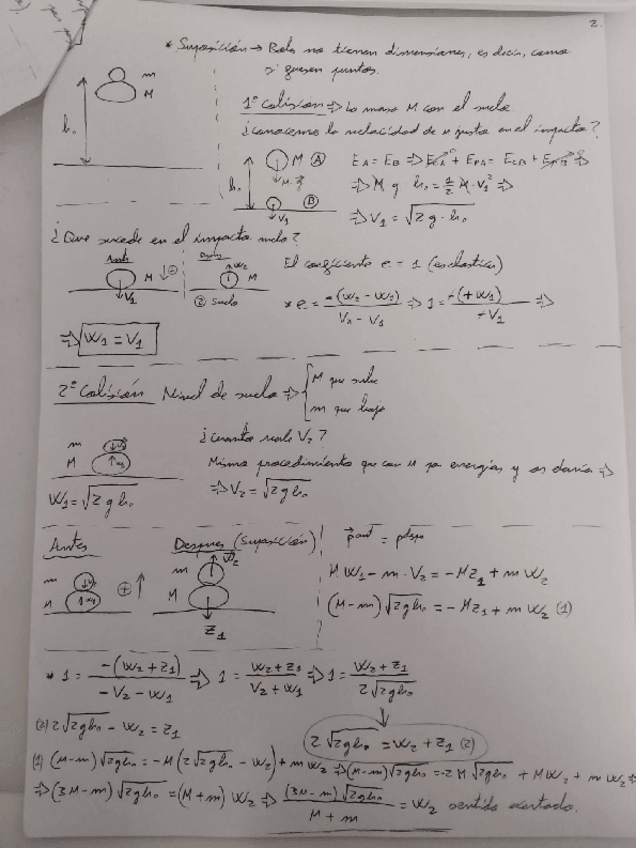 2.
* Suposición → Bolas no tienen dimensiones, es decir, como
si fuesen puntos.
m
M
h₀
1ª Colisión ⇒ La masa M con el suelo
¿conocemos la velocidad de M justo en el impacto?
M Ⓐ
h₀
Ⓑ
V₁
E_A = E_B ⇒ E_CA⁰ + E_PA = E_CB + E_PB⁰ ⇒
⇒ M g h₀ = 1/2 M · V₁² ⇒
⇒ V₁ = √(2g·h₀)
¿Que sucede en el impacto suelo?
Antes
Después
M ↓⊕
V₁
W₂
M
② suelo
El coeficiente e = 1 (es elástico)
* e = -(W₂ - W₂)/(V₂ - V₁) ⇒ 1 = -(+W₁)/(-V₁) ⇒
⇒ W₁ = V₁
2ª Colisión Nivel de suelo ⇒ { M que sube
m que baja
¿cuanto vale V₂?
m
M
Mismo procedimiento que con M por energías y os daría ⇒
W₁ = √(2gh₀)
⇒ V₂ = √(2gh₀)
Antes
Despues (Suposición)
p ant = p desp
m
M
⊕ ↑
m
M
W₂
Z₁
M W₁ - m · V₂ = -M Z₁ + m W₂
(M-m) √(2gh₀) = -M Z₁ + m W₂ (1)
* 1 = -(W₂ + Z₁)/(-V₂ - W₁) ⇒ 1 = (W₂ + Z₁)/(V₂ + W₁) ⇒ 1 = (W₂ + Z₁)/(2√(2gh₀))
(2) 2√(2gh₀) - W₂ = Z₁
2√(2gh₀) = W₂ + Z₁ (2)
(1) (M-m) √(2gh₀) = -M (2√(2gh₀) - W₂) + m W₂ ⇒ (M-m) √(2gh₀) = -2M √(2gh₀) + M W₂ + m W₂ ⇒
⇒ (3M-m) √(2gh₀) = (M+m) W₂ ⇒ (3M-m) √(2gh₀)/(M+m) = W₂ sentido acertado.